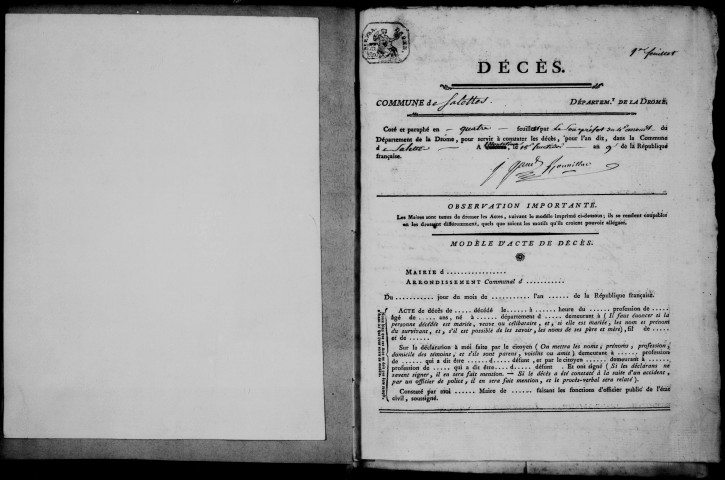 1er feuillet
DÉCÈS.
COMMUNE de Salettes. DÉPARTEM.t DE LA DROME.
Coté et paraphé en quatre feuillets par le Sous préfet du du
Département de la Drome, pour servir à constater les décès, pour l'an dix, dans la Commune
d e Salette A le 18 fructidor an 9e de la République
française.
OBSERVATION IMPORTANTE.
Les Maires sont tenus de dresser les Actes, suivant le modèle imprimé ci-dessous; ils se rendent coupables
en les dressant différemment, quels que soient les motifs qu'ils croient pouvoir alléguer.
MODÈLE D'ACTE DE DÉCÈS.
MAIRIE d ..................
ARRONDISSEMENT Communal d ...........
Du ............ jour du mois de ............ l'an ...... de la République française.
ACTE de décès de ...... décédé le ...... à ...... heure du ...... profession de ......
âgé de ...... ans, né à ...... département d ...... demeurant à ...... (Il faut énoncer si la
personne décédée est mariée, veuve ou célibataire, et, si elle est mariée, les nom et prénom
du survivant, et, s'il est possible de les savoir, les noms de ses père et mère), fil de ......
et de ......
Sur la déclaration à moi faite par le citoyen (On mettra les noms, prénoms, profession,
domicile des témoins, et s'ils sont parens, voisins ou amis) demeurant à ...... profession
de ...... qui a dit être ...... d ...... défunt, et par le citoyen ...... demeurant à ......
profession de ...... qui a dit être ...... d ...... défunt . Et ont signé (Si les déclarans ne
savent signer, il en sera fait mention. — Si le décès a été constaté à la suite d'un accident,
par un officier de police, il en sera fait mention, et le procès-verbal sera relaté).
Constaté par moi ...... Maire de ...... faisant les fonctions d'officier public de l'état
civil, soussigné.